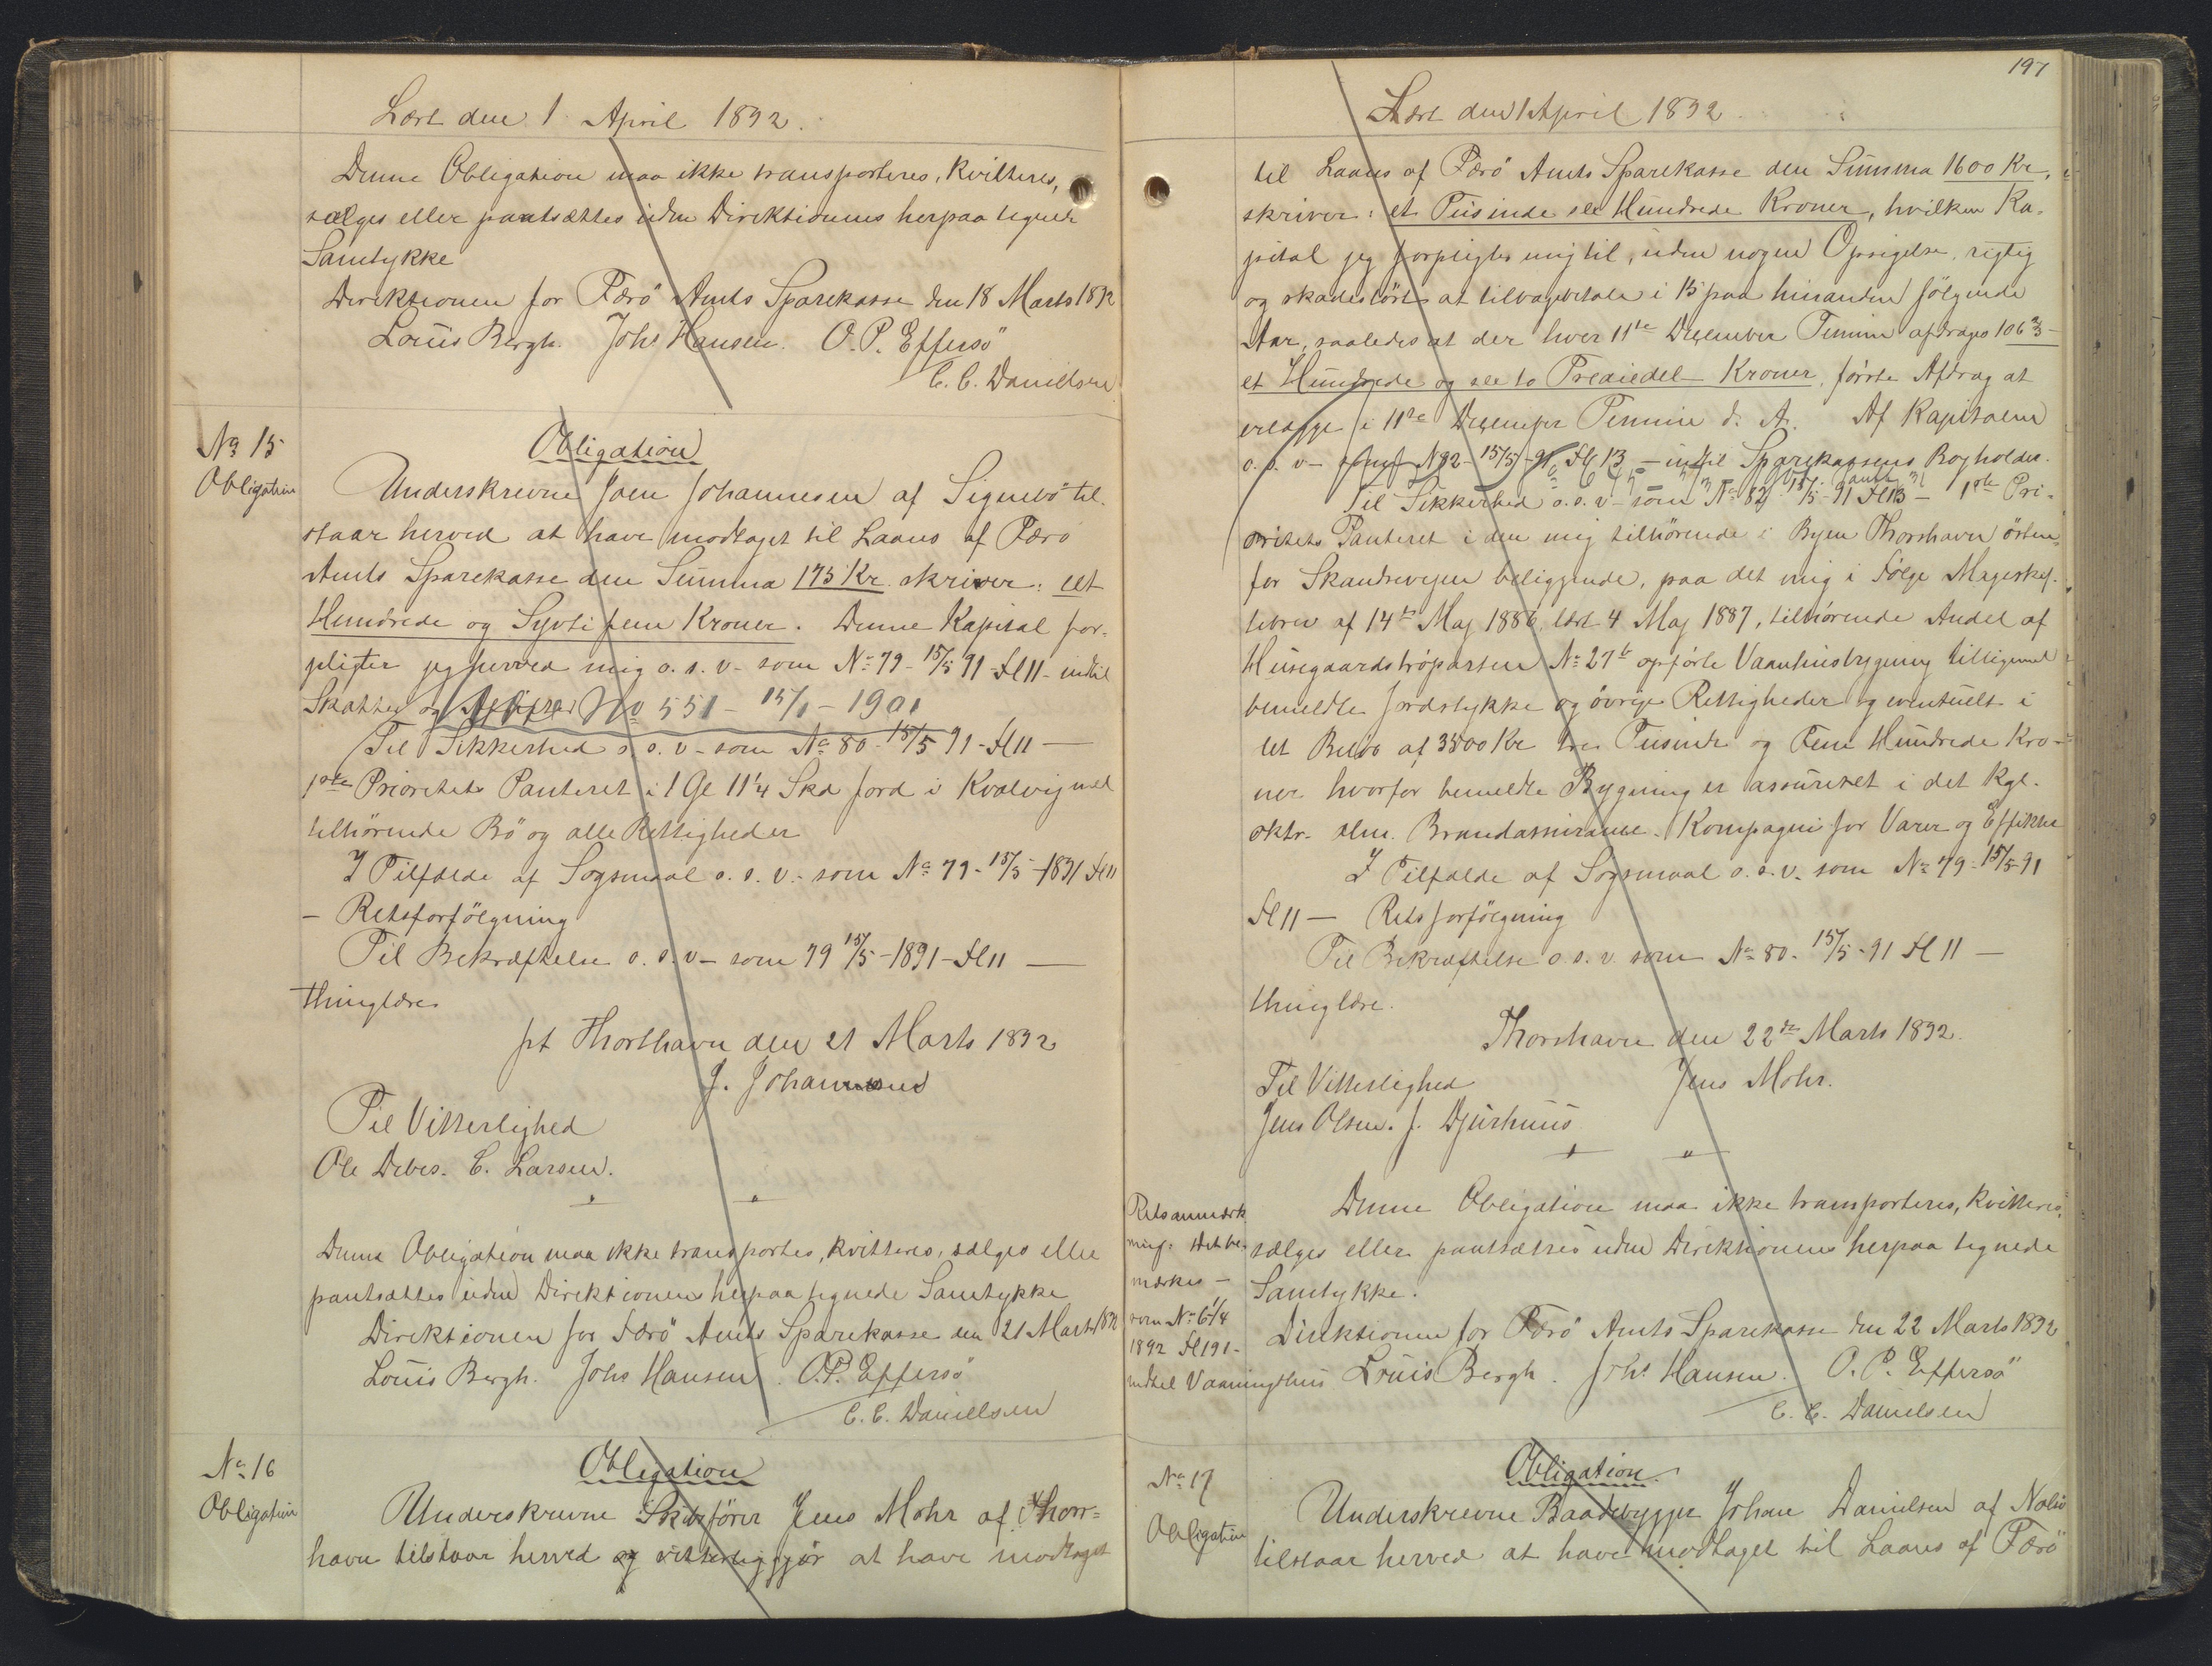 Læst den 1 April 1892.
Denne Obligation maa ikke transporteres, kvitteres,
sælges eller pantsættes uden Direktionens herpaa tegnede
Samtykke
Direktionen for Færö Amts Sparekasse den 18 Marts 1892
Louis Bergh. Johs Hansen. O. P. Effersö
C. C. Danielsen
No 15
Obligation
Obligation
Underskrevne Joen Johannesen af Signebö til-
staar herved at have modtaget til Laans af Færö
Amts Sparekasse den Summa 175 Kr. skriver: eet
Hundrede og Syvti fem Kroner. Denne Kapital for-
pligter jeg herved mig o. s. v. som No 79 - 15/5 91 - Fl 11 - indtil
Skatter og No 551 - 15/1 - 1901
Til Sikkerhed o. s. v. som No 80 - 15/5 91 - Fl 11 —
1ste Prioritets Panteret i 1 Gl 11 1/4 Skd Jord i Kvalvig med
tilhörende Bö og alle Rettigheder
I Tilfælde af Sögsmaal o. s. v. som No 79 - 15/5 - 1891 Fl 11
— Retsforfölgning
Til Bekræftelse o. s. v - som 79 15/5 - 1891 - Fl 11 —
thinglæses
pt Thorshavn den 21 Marts 1892
J. Johannesen
Til Vitterlighed
Ole Debes. C. Larsen.
Denne Obligation maa ikke transportes, kvitteres, sælges eller
pantsættes uden Direktionens herpaa tegnede Samtykke
Direktionen for Færö Amts Sparekasse den 21 Marts 1892
Louis Bergh. Johs Hansen. O. P. Effersö
C. C. Danielsen
No 16
Obligation
Obligation
Underskrevne Skibsförer Jens Mohr af Thors-
havn tilstaar herved og vitterliggjör at have modtaget
197
Læst den 1 April 1892.
til Laans af Færö Amts Sparekasse den Summa 1600 Kr.,
skriver: et Tusinde sex Hundrede Kroner, hvilken Ka-
pital jeg forpligter mig til, uden nogen Opsigelse, rigtig
og skadeslöst at tilbagebetale i 15 paa hinanden fölgende
Aar, saaledes at der hver 11te December Termin afdrages 106 2/3 —
et Hundrede og sex to Trediedel Kroner, förste Afdrag at
erlægge i 11te December Termin d. A. Af Kapitalen
o. s. v - No 92 - 15/5 - 91 Fl 13 - indtil Sparekassens Bogholder.
Til Sikkerhed o. s. v - som No 82 15/5 - 91 Fl 13 - 1ste Pri-
oritets Panteret i den mig tilhörende i Byen Thorshavn östen-
for Skandsevejen beliggende, paa det mig i Fölge Mageskif-
tebrev af 14de Maj 1886, læst 4 Maj 1887, tilhörende Andel af
Husegaardströparten No 27b opförte Vaaninsbygning tilligemed
bemeldte Jordstykke og övrige Rettigheder og eventuelt i
det Belöb af 3500 Kr tre Tusinde og Fem Hundrede Kro-
ner hvorfor bemeldte Bygning er assureret i det Kgl.
oktr. alm. Brandassurance-Kompagni for Varer og Effekter
I Tilfælde af Sögsmaal o. s. v. som No 79 - 15/5 - 91
Fl 11 — Retsforfölgning
Til Bekræftelse o. s. v. som No 80 - 15/5 - 91 Fl 11 —
thinglæse.
Thorshavn den 22de Marts 1892.
Til Vitterlighed Jens Mohr.
Jens Olsen. J. Djurhuus
Retsanmærk
ning: Det be-
mærkes —
som No 6 1/4
1892 Fl 191 -
indtil Vaaningshus
Denne Obligation maa ikke transporteres, kvitteres,
sælges eller pantsættes uden Direktionens herpaa tegnede
Samtykke.
Direktionen for Færö Amts Sparekasse den 22 Marts 1892
Louis Bergh. Johs Hansen. O. P. Effersö
C. C. Danielsen
No 17
Obligation
Obligation.
Underskrevne Baadebygger Johan Danielsen af Nolsö
tilstaar herved at have modtaget til Laans af Færö